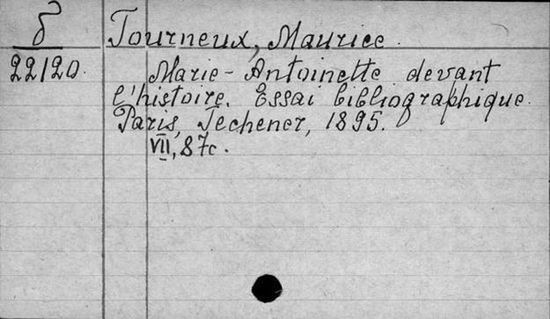 б
22120.
Tourneux, Maurice.
Marie-Antoinette devant
l'histoire. Essai bibliographique.
Paris, Techener, 1895.
VII, 87c.